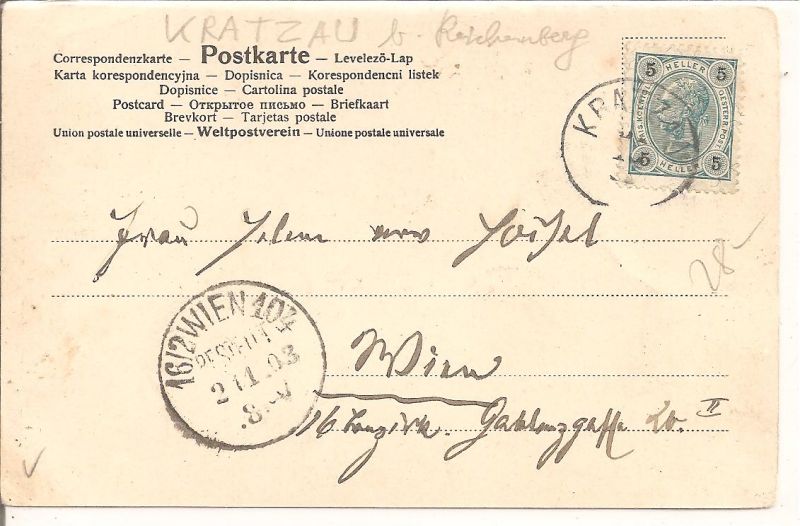 KRATZAU b. Reichenberg
Correspondenzkarte – Postkarte – Levelező-Lap
Karta korespondencyjna – Dopisnica – Korespondencni listek
Dopisnice – Cartolina postale
Postcard – Открытое письмо – Briefkaart
Brevkort – Tarjetas postale
Union postale universelle – Weltpostverein – Unione postale universale
5 HELLER 5
KAIS. KOENIGL. OESTERR. POST.
5 HELLER 5
KRATZ
Frau
28
16/2 WIEN 104
BESTELLT
03
.8.
Wien
16 Bezirk. Gablenzgasse 20. II